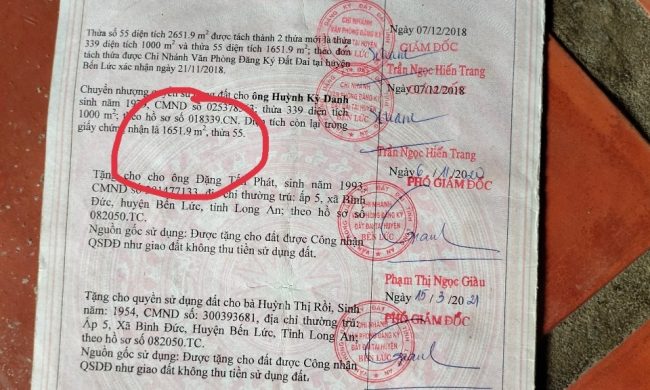 Thửa số 55 diện tích 2651.9 m² được tách thành 2 thửa mới là thửa
339 diện tích 1000 m² và thửa 55 diện tích 1651.9 m²; theo đơn
tách thửa được Chi Nhánh Văn Phòng Đăng Ký Đất Đai tại huyện
Bến Lức xác nhận ngày 21/11/2018.
Ngày 07/12/2018
GIÁM ĐỐC
Trần Ngọc Hiến Trang
Chuyển nhượng quyền sử dụng đất cho ông Huỳnh Kỳ Danh
sinh năm CMND số thửa 339 diện tích
1000 m²; theo hồ sơ số 018339.CN. Diện tích còn lại trong
giấy chứng nhận là 1651.9 m², thửa 55.
Ngày 07/12/2018
Trần Ngọc Hiến Trang
Tặng cho cho ông Đặng Tấn Phát, sinh năm 1993,
CMND số địa chỉ thường trú: ấp 5, xã Bình
Đức, huyện Bến Lức, tỉnh Long An; theo hồ sơ số
082050.TC.
Nguồn gốc sử dụng: Được tặng cho đất được Công nhận
QSDĐ như giao đất không thu tiền sử dụng đất.
Ngày 6/11/2020
PHÓ GIÁM ĐỐC
Phạm Thị Ngọc Giàu
Tặng cho quyền sử dụng đất cho bà Huỳnh Thị Rồi, Sinh
năm: 1954, CMND số: 300393681, địa chỉ thường trú:
Ấp 5, Xã Bình Đức, Huyện Bến Lức, Tỉnh Long An;
theo hồ sơ số 082050.TC.
Nguồn gốc sử dụng: Được tặng cho đất được Công nhận
QSDĐ như giao đất không thu tiền sử dụng đất.
Ngày 15/3/2021
PHÓ GIÁM ĐỐC
CHI NHÁNH
VĂN PHÒNG ĐĂNG KÝ
ĐẤT ĐAI TẠI HUYỆN
BẾN LỨC